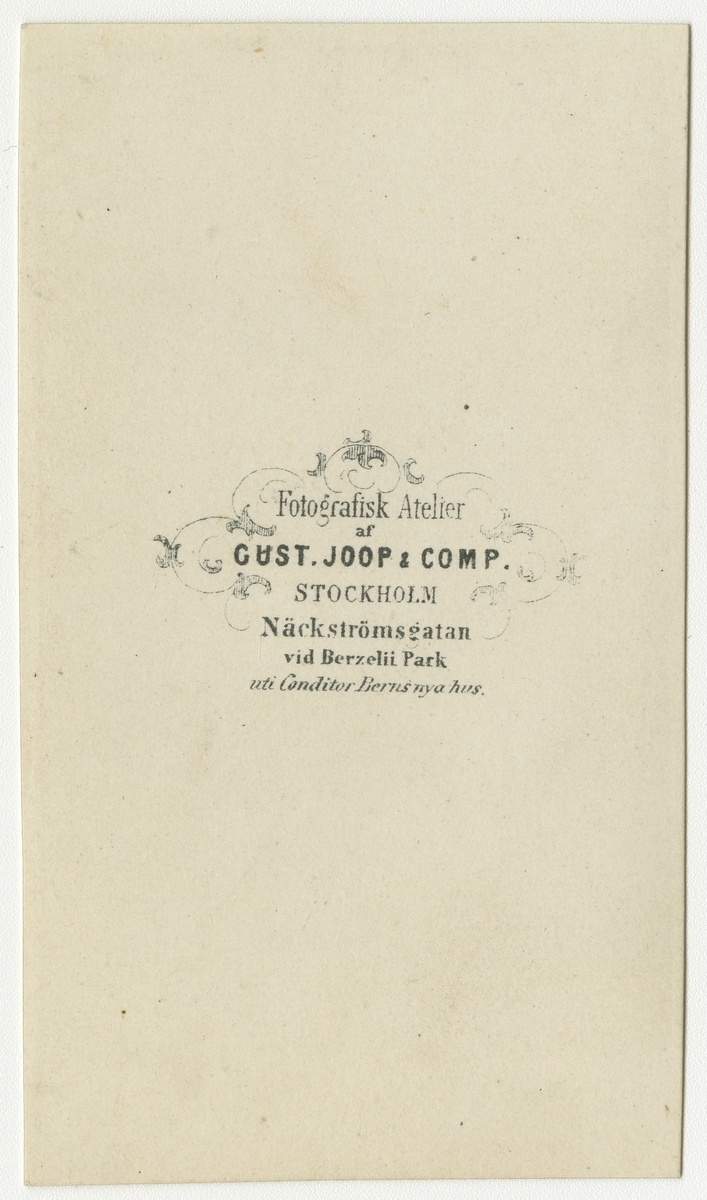 Fotografisk Atelier
af
GUST. JOOP & COMP.
STOCKHOLM
Näckströmsgatan
vid Berzelii Park
uti Conditor Berns nya hus.